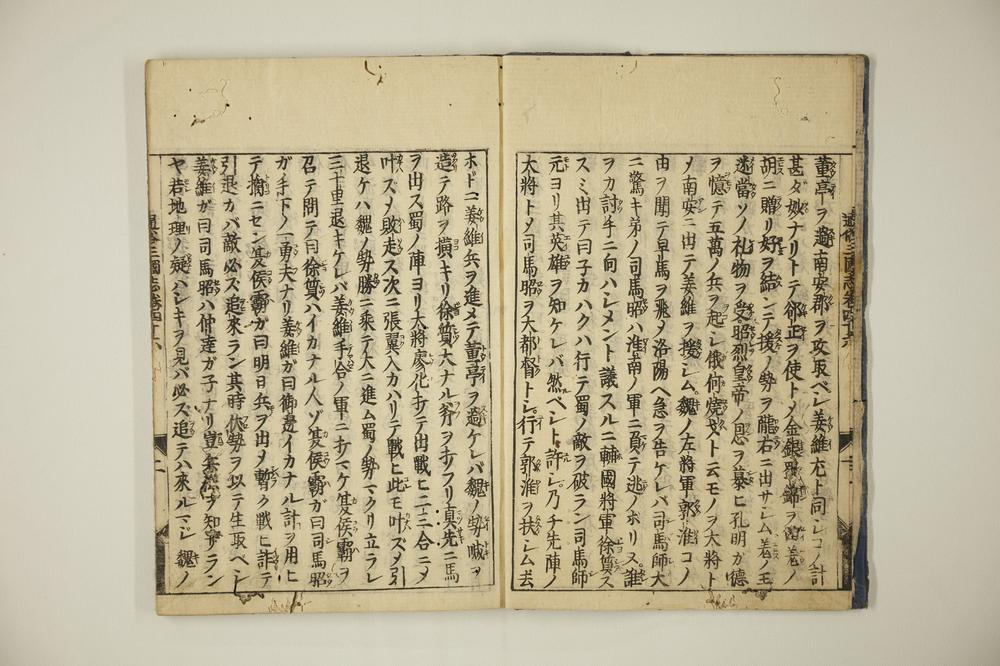 董亭ヲ過南安郡ヲ攻取ベシ姜維尤ト同シコノ計
甚ダ妙ナリトテ郤正ヲ使トメ金銀蜀錦ヲ西羌ノ
胡ニ贈リ好ヲ結ンデ援ノ勢ヲ隴右ニ出サシム羌ノ王
迷當ソノ礼物ヲ受昭烈皇帝ノ恩ヲ慕ヒ孔明ガ德
ヲ憶テ五萬ノ兵ヲ起シ俄何燒戈ト云モノヲ大將ト
メ南安ニ出テ姜維ヲ援シム魏ノ左將軍郭淮コノ
由ヲ聞テ早馬ヲ飛メ洛陽ヘ急ヲ告ケレバ司馬師大
ニ驚キ弟ノ司馬昭ハ淮南ノ軍ニ負テ逃ノボリヌ誰
ヲカ討手ニ向ハシメント議スルニ輔國將軍徐質ス
スミ出テ曰子カハクハ行テ蜀ノ敵ヲ破ラン司馬師
元ヨリ其英雄ヲ知ケレバ然ベシト許シ乃チ先陣ノ
大將トメ司馬昭ヲ大都督トシ行テ郭淮ヲ扶シム去
通俗三國志卷四十六
ホドニ姜維兵ヲ進メテ董亭ヲ過ケレバ魏ノ勢喊ヲ
造テ路ヲ横キリ徐質大ナル斧ヲ打フリ真先ニ馬
ヲ出ス蜀ノ陣ヨリ大將廖化打テ出戰ヒニ三合ニメ
叶ズメ敗走ス次ニ張翼入カハリテ戰ヒ此モ叶ズメ引
退ケハ魏ノ勢勝ニ乘テ大ニ進ム蜀ノ勢マクリ立ラレ
三十里退キケレバ姜維手合ノ軍ニ打マケ夏侯霸ヲ
召テ問テ曰徐質ハイカナル人ゾ夏侯霸ガ曰司馬昭
ガ手下ノ一勇夫ナリ姜維ガ曰御邊イカナル計ヲ用ヒ
テ擒ニセン夏侯霸ガ曰明日兵ヲ出メ暫ク戰ヒ詐テ
引退カバ敵必ズ追來ラン其時伏勢ヲ以テ生取ベシ
姜維ガ曰司馬昭ハ仲達ガ子ナリ豈兵法ヲ知ザラン
ヤ若地理ノ疑ハシキヲ見バ必ズ追テハ來ルマシ魏ノ
通俗三國志卷四十六